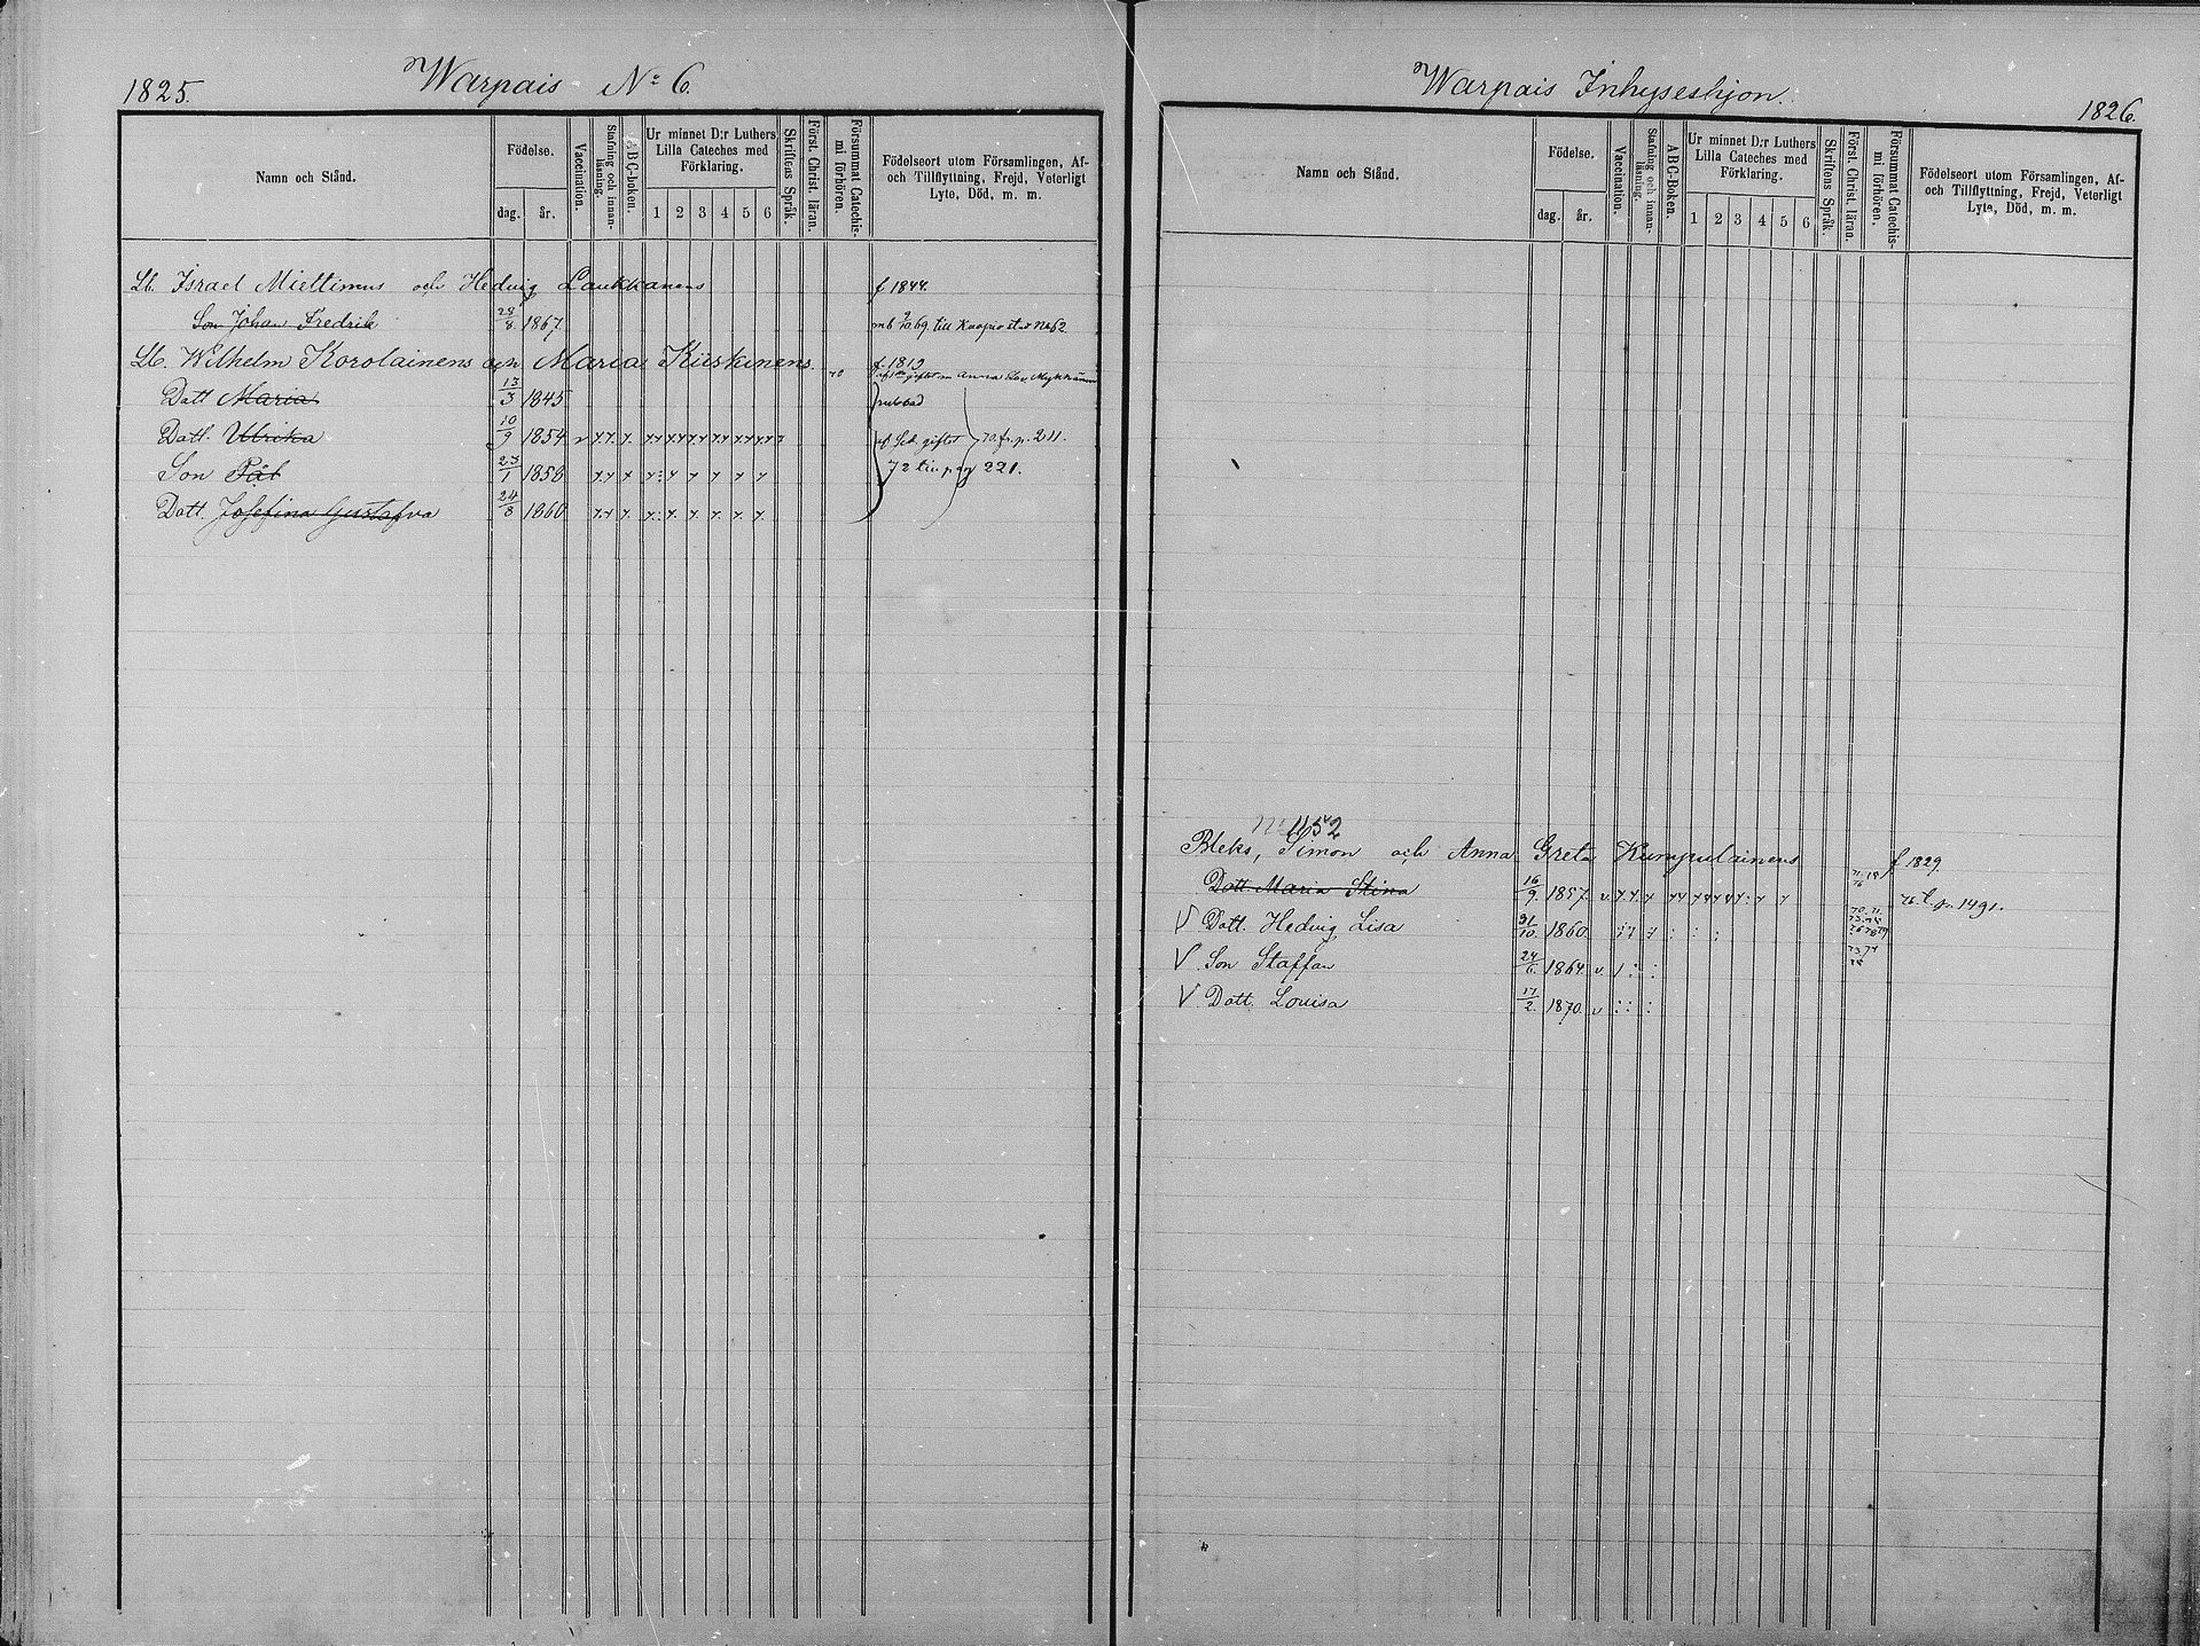 1825.
Warpais Nº 6.
Namn och Stånd.
Födelse.
dag.
år.
Vaccination.
Stafning och innanläsning.
ABC-boken.
Ur minnet D:r Luthers
Lilla Cateches med
Förklaring.
1 2 3 4 5 6
Skriftens Språk.
Först. Christ. läran.
Försummat Catechismi förhören.
Födelseort utom Församlingen, Af-
och Tillflyttning, Frejd, Veterligt
Lyte, Död, m. m.
Lb. Israel Miettinens och Hedvig Laukkanens f 1844.
Son Johan Fredrik 28/8 1867 mb 9/10 69. till Kuopio stad No 62.
Lb. Wilhelm Korolainens och Maria Kiiskinens. 70 f. 1813
giftet m Anna Lov. Mykkänen
Dott Maria 13/3 1845
Dott. Ulrika 10/9 1854 giftet 70. fr. p. 211.
Son Pål 23/1 1858 72 till pag 221.
Dott. Josefina Gustafva 24/8 1860
Warpais Inhyseshjon.
1826.
Namn och Stånd.
Födelse.
dag.
år.
Vaccination.
Stafning och innanläsning.
ABC-Boken.
Ur minnet D:r Luthers
Lilla Cateches med
Förklaring.
1 2 3 4 5 6
Skriftens Språk.
Först. Christ. läran.
Försummat Catechismi förhören.
Födelseort utom Församlingen, Af-
och Tillflyttning, Frejd, Veterligt
Lyte, Död, m. m.
1152
Bleks, Simon och Anna Greta Kumpulainens f 1829.
Dott. Maria Stina 16/9. 1857. 76. t. p. 1491.
V Dott. Hedvig Lisa 31/10. 1860.
V Son Staffan 24/6. 1864.
V Dott. Lovisa 17/2. 1870.